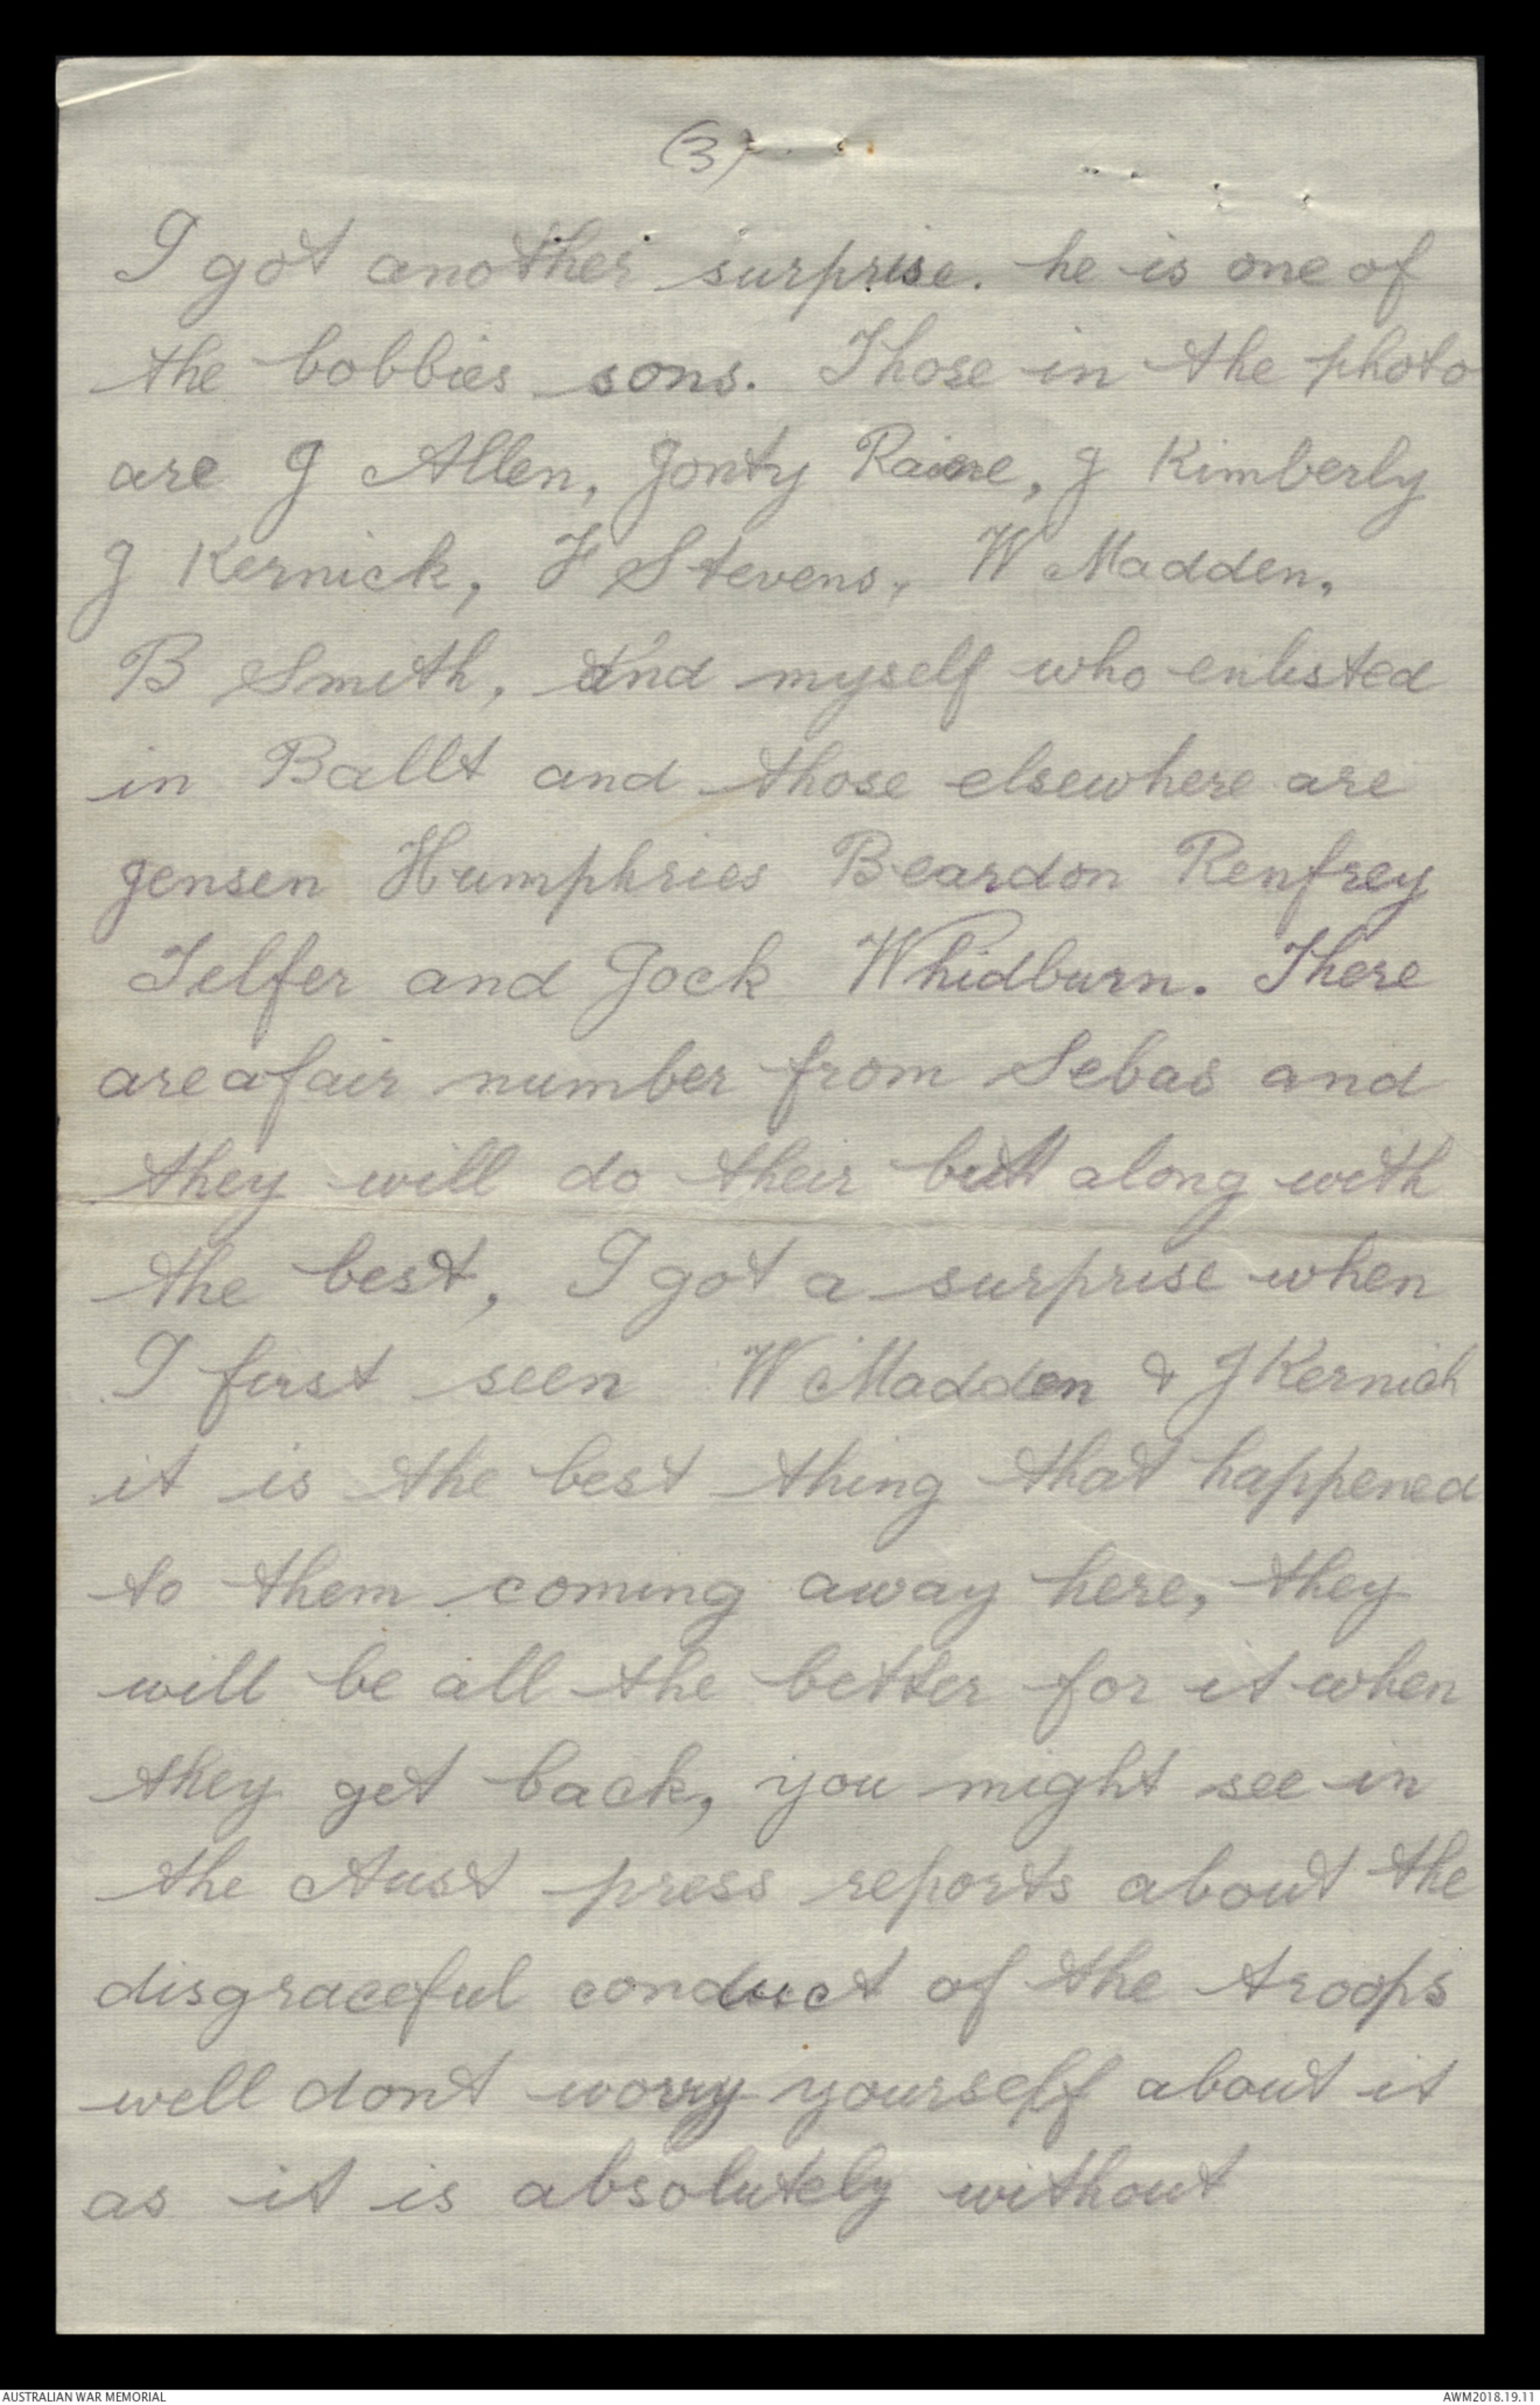 (3)
I got another surprise. he is one of
the bobbies sons. Those in the photo
are J Allen, Jonty Raine, J Kimberly
J Kernick, F Stevens, W Madden,
B Smith, and myself who enlisted
in Ballt and those elsewhere are
Jensen Humphries Beardon Renfrey
Telfer and Jock Whidburn. There
are a fair number from Sebas and
they will do their bit along with
the best, I got a surprise when
I first seen W Madden & J Kernick
it is the best thing that happened
to them coming away here, they
will be all the better for it when
they get back, you might see in
the Aust press reports about the
disgraceful conduct of the troops
well dont worry yourself about it
as it is absolutely without
AUSTRALIAN WAR MEMORIAL
AWM2018.19.11